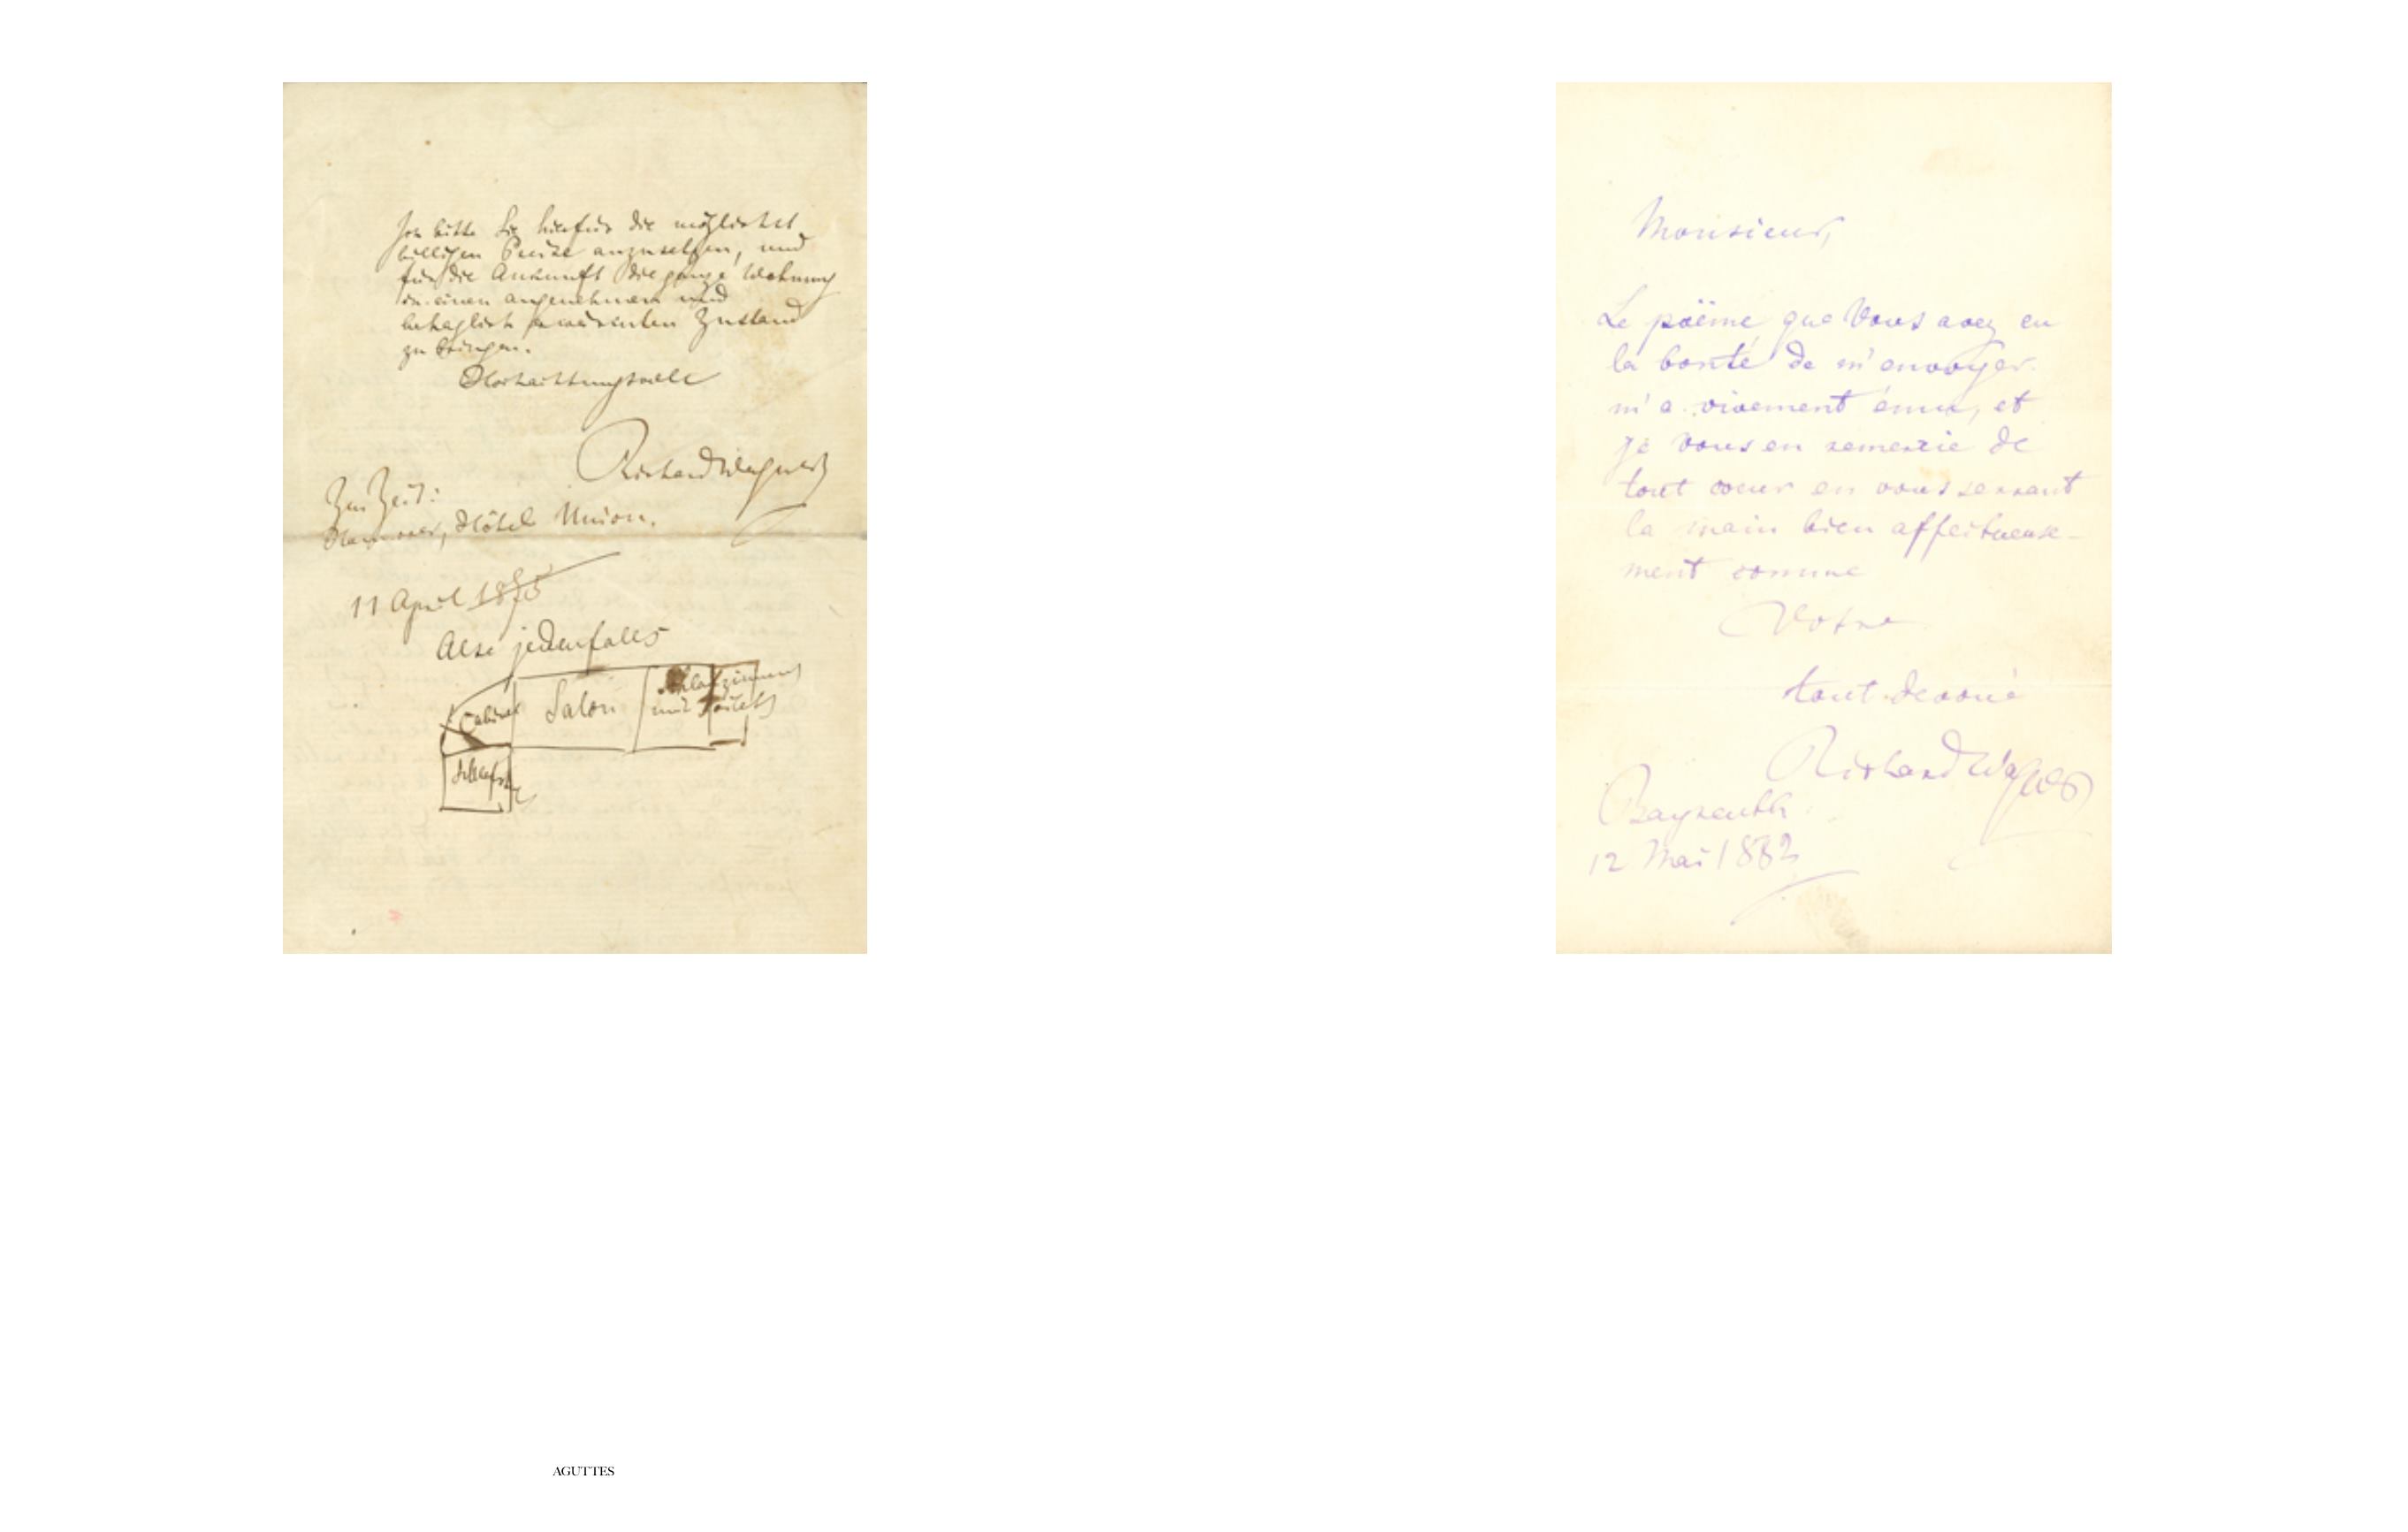 Ich bitte Sie hierfür die möglichst
billigen Preise anzusetzen, und
für die Ankunft die ganze Wohnung
in einen angenehmen und
behaglich erwärmten Zustand
zu bringen.
Hochachtungsvoll
Richard Wagner
Zur Zeit:
Hannover, Hôtel Union.
11 April 1875
Also jedenfalls
Cabinet Salon Schlafzimmer
mit Toilette
Schlafz
Monsieur,
Le poëme que Vous avez eu
la bonté de m'envoyer
m'a vivement ému, et
je vous en remercie de
tout coeur en vous serrant
la main bien affectueuse-
ment comme
Votre
tout devoué
Richard Wagner
Bayreuth
12 Mai 1882
AGUTTES